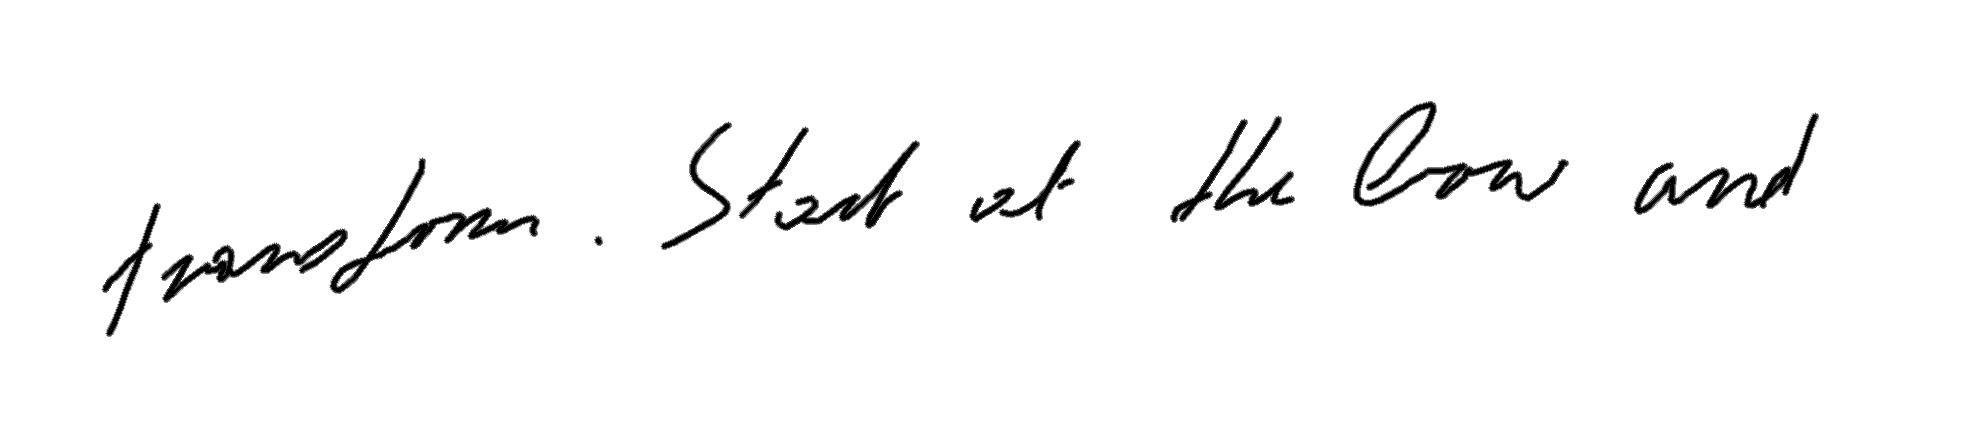 transform. Start at the low and